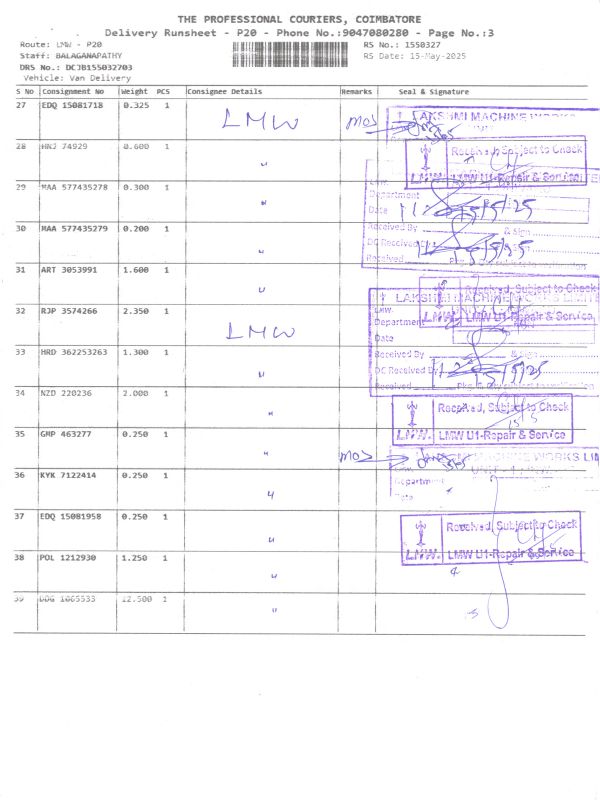 THE PROFESSIONAL COURIERS, COIMBATORE
Delivery Runsheet - P20 - Phone No.:9047080280 - Page No.:3
Route: LMW - P20
RS No.: 1550327
Staff: BALAGANAPATHY
RS Date: 15-May-2025
DRS No.: DCJB155032703
Vehicle: Van Delivery
S No Consignment No Weight PCS Consignee Details Remarks Seal & Signature
27 EDQ 15081718 0.325 1 LMW MOS
LAKSHMI MACHINE WORKS
28 HNJ 74929 0.600 1 "
Received, Subject to Check
LMW. LMW U1-Repair & Service
29 MAA 577435278 0.300 1 "
Department
Date 15/5/25
30 MAA 577435279 0.200 1 "
Received By & Sign
DC Received 15/5/25
Received
31 ART 3053991 1.600 1 "
Received, Subject to Check
LAKSHMI MACHINE WORKS LIMITE
32 RJP 3574266 2.350 1 LMW
LMW. LMW U1-Repair & Service
Department
Date
33 HRD 362253263 1.300 1 "
Received By & Sign
DC Received 15/5/25
Received
34 NZD 220236 2.000 1 "
Received, Subject to Check
35 GMP 463277 0.250 1 " MOS
LMW. LMW U1-Repair & Service
MACHINE WORKS LIM
36 KYK 7122414 0.250 1 "
Department
Date
37 EDQ 15081958 0.250 1 "
Received, Subject to Check
38 POL 1212930 1.250 1 "
LMW. LMW U1-Repair & Service
39 DDG 1065533 12.500 1 "